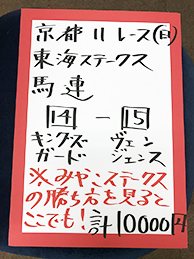 京都11レース(日)
東海ステークス
馬連
14-15
キングズ ヴェン
ガード ジェンス
※みやこステークス
の勝ち方を見ると
ここでも!計10000円